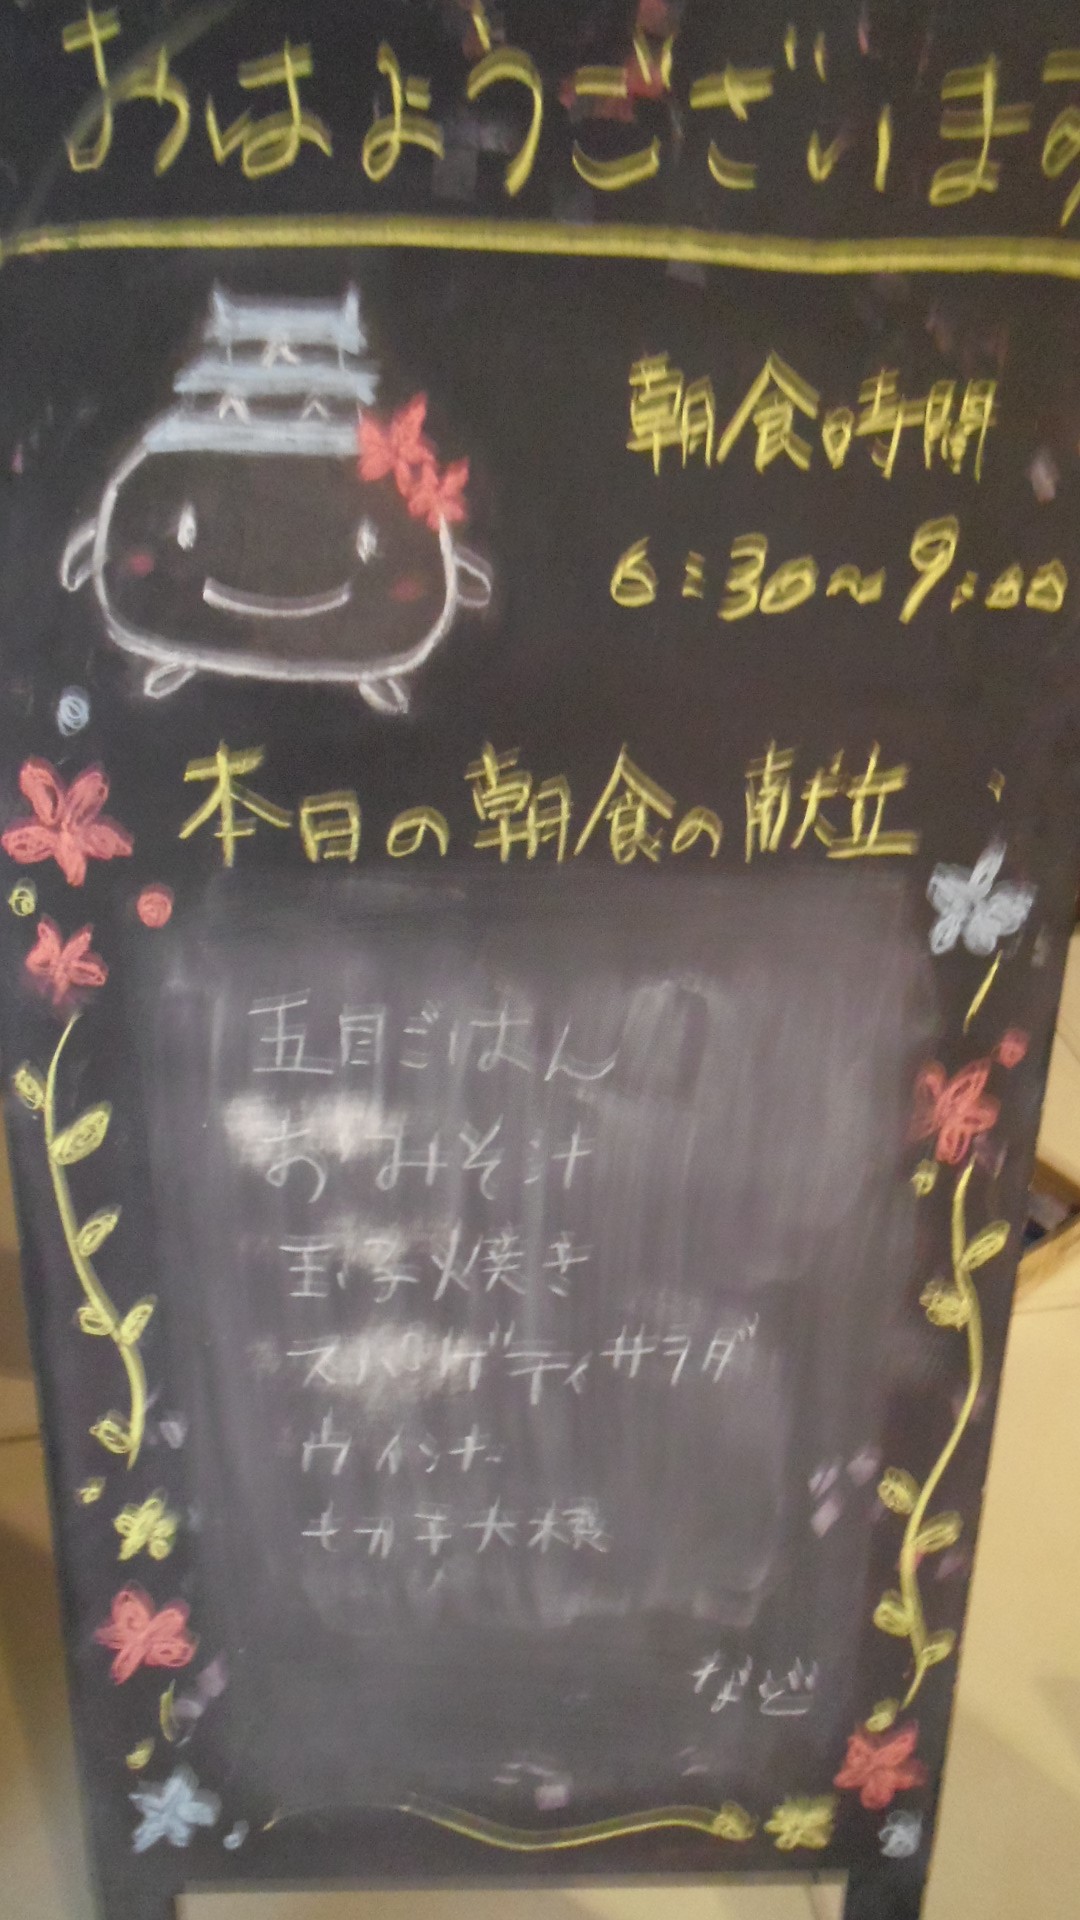 おはようございます
朝食時間
6:30〜9:00
本日の朝食の献立
五目ごはん
おみそ汁
玉子焼き
スパゲティサラダ
ウインナー
切干大根
など